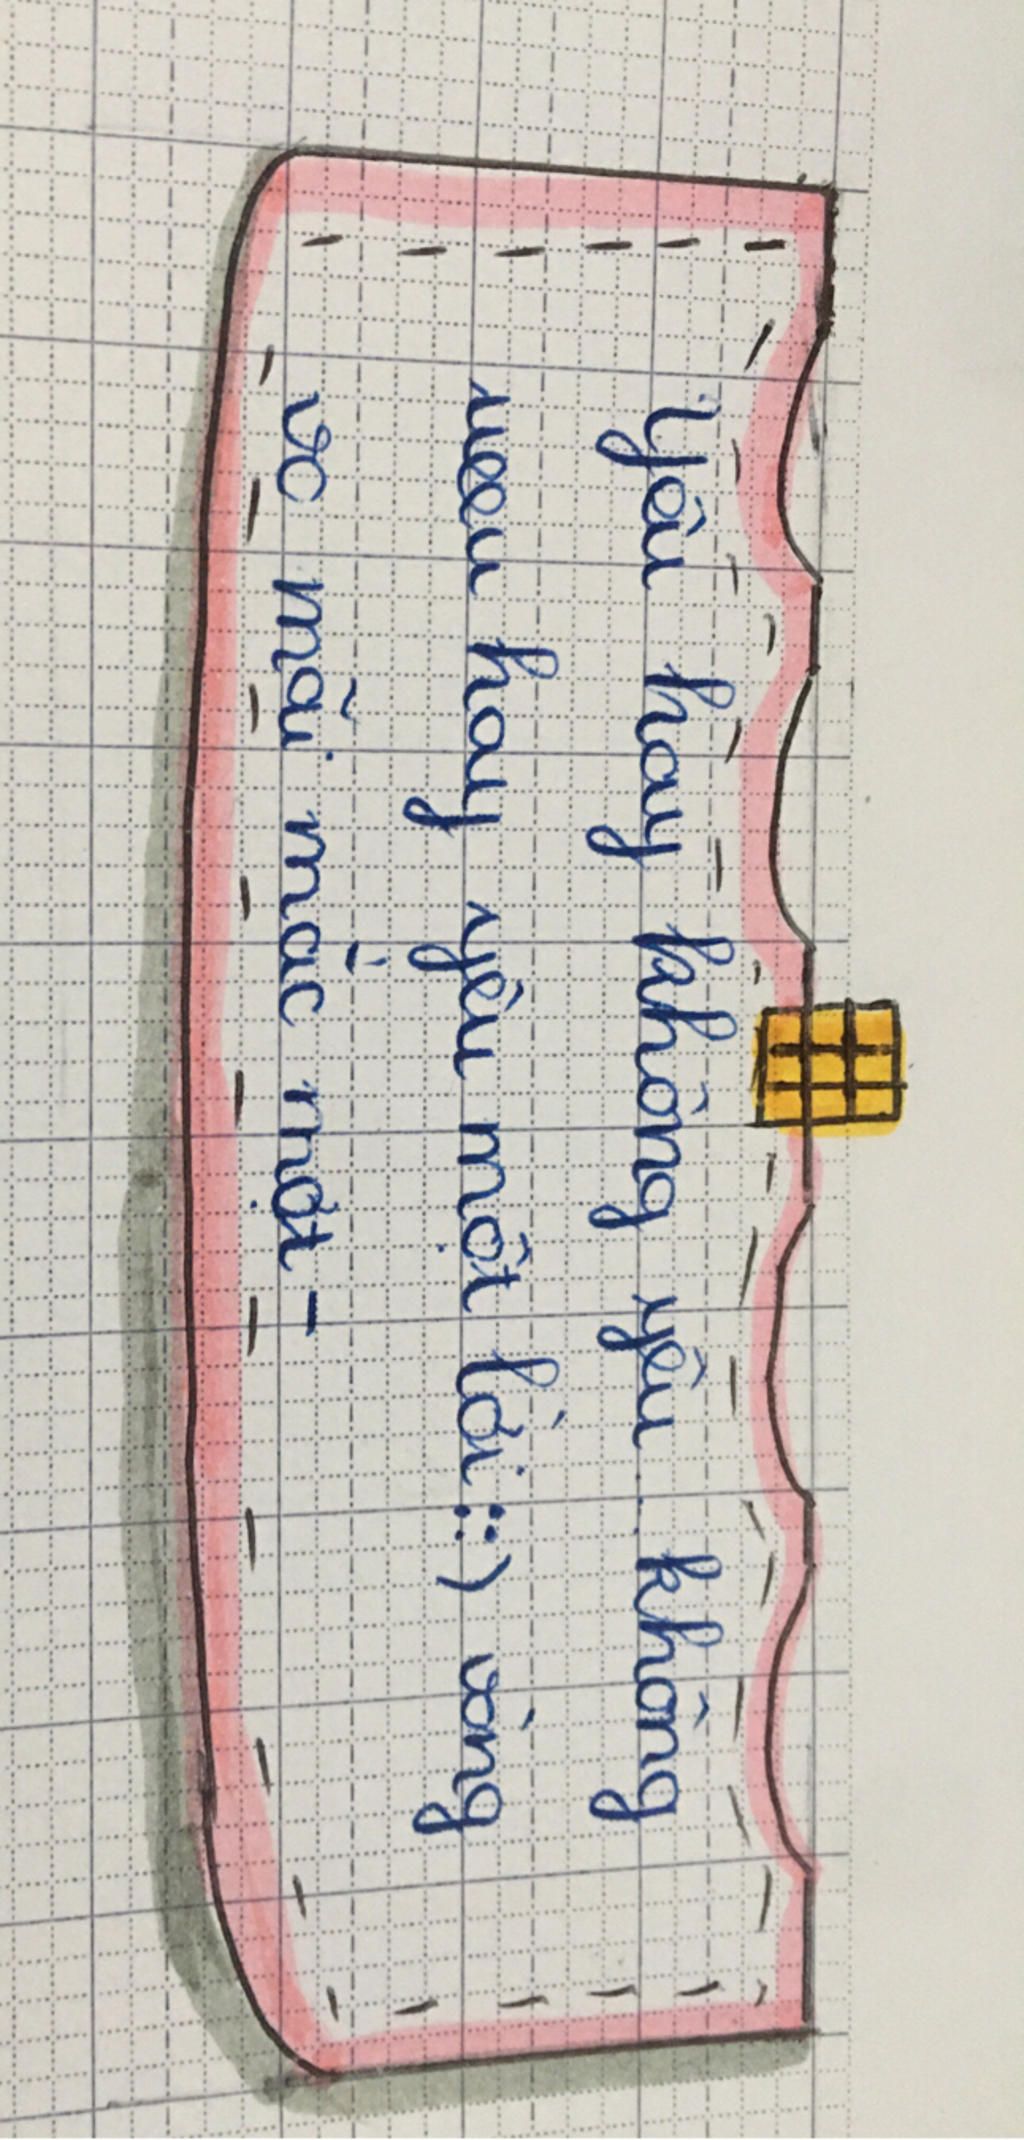 Yêu hay không yêu không
iêu hay yêu một lời ::) vòng
vo mãi mắc mớt -